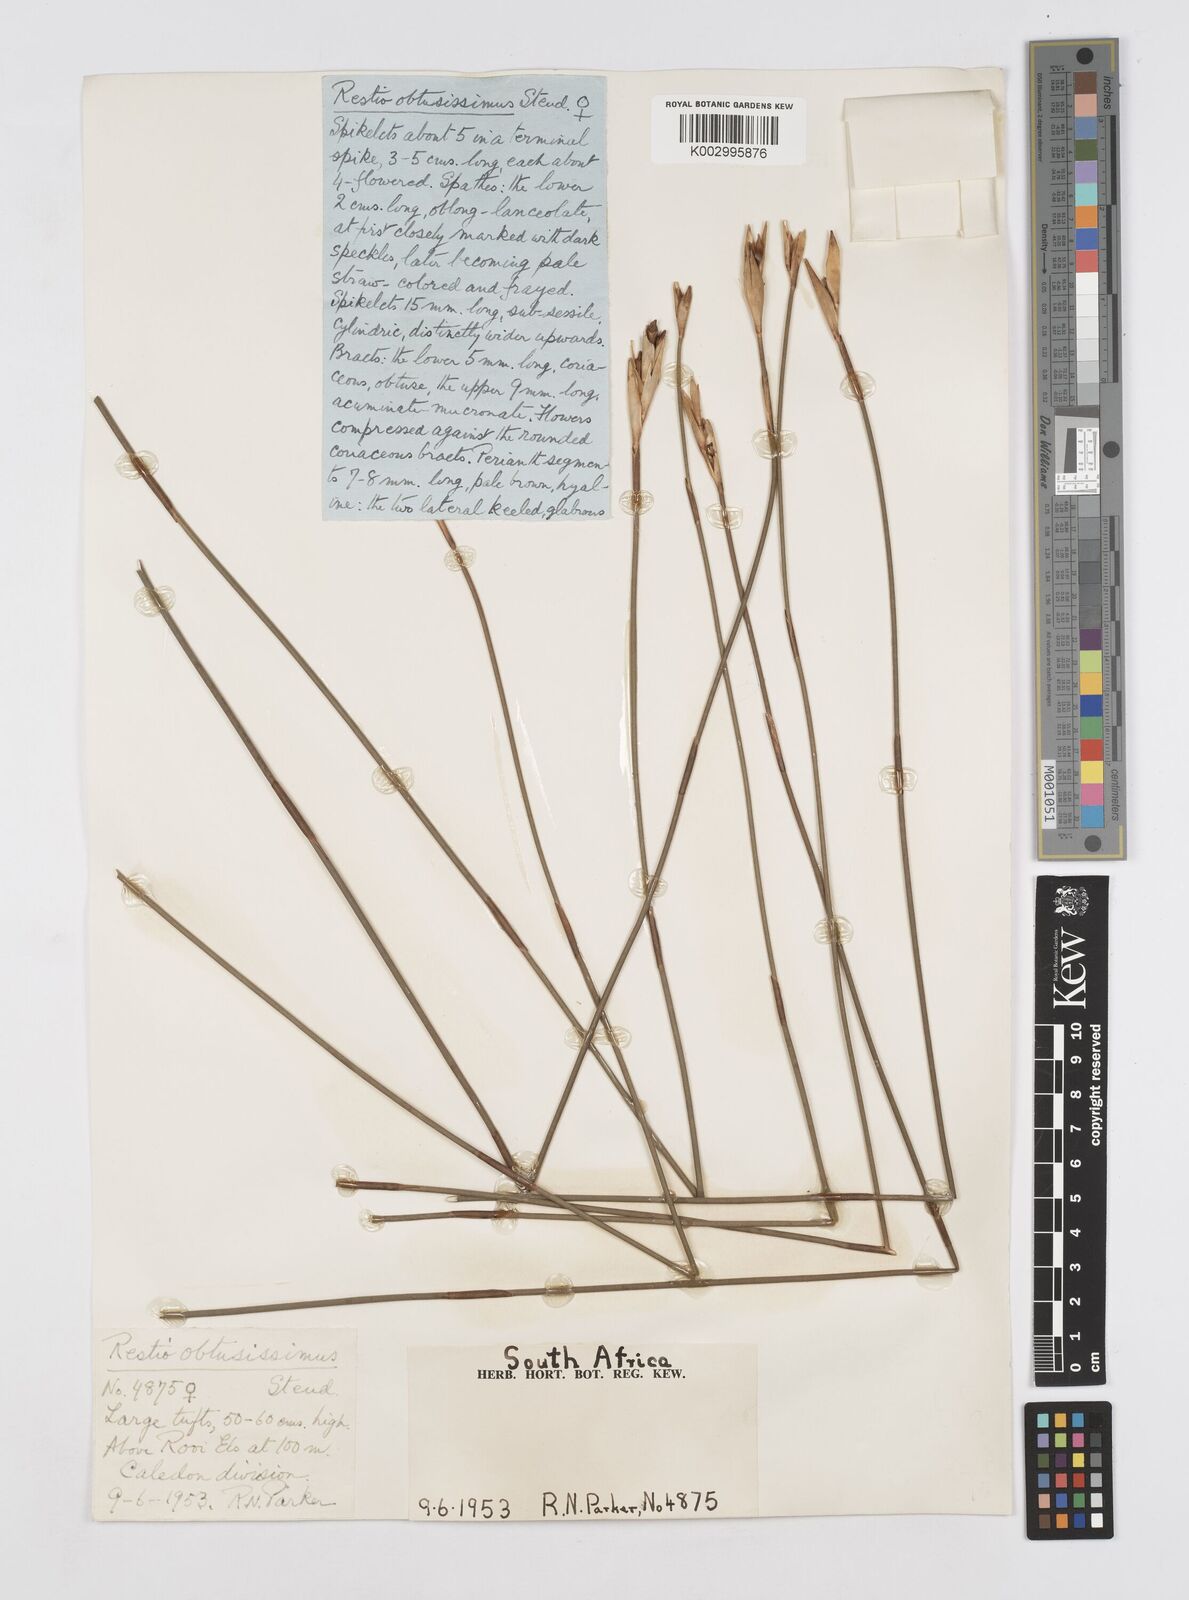 Restio obtusissimus Steud. ♀
Spikelets about 5 in a terminal
spike, 3-5 cms. long, each about
4-flowered. Spathes: the lower
2 cms. long, oblong-lanceolate,
at first closely marked with dark
speckles, later becoming pale
straw-colored and frayed.
Spikelets 15 mm. long, sub-sessile,
cylindric, distinctly wider upwards.
Bracts: the lower 5 mm. long, coria-
ceous, obtuse, the upper 9 mm. long,
acuminate-mucronate. Flowers
compressed against the rounded
coriaceous bracts. Perianth segmen-
ts 7-8 mm. long, pale brown, hyal-
ine: the two lateral keeled, glabrous
ROYAL BOTANIC GARDENS KEW
K002995876
Restio obtusissimus
No. 4875 ♀ Steud.
Large tufts, 50-60 cms. high.
Above Rooi Els at 100 m.
Caledon division.
9-6-1953. R.N. Parker
South Africa
HERB. HORT. BOT. REG. KEW.
9.6.1953 R.N.Parker, No 4875
inches
Density
Don Williams
M001051
centimeters
Royal Botanic Gardens
Kew
copyright reserved
0 1 2 3 4 5 6 7 8 9 10
cm